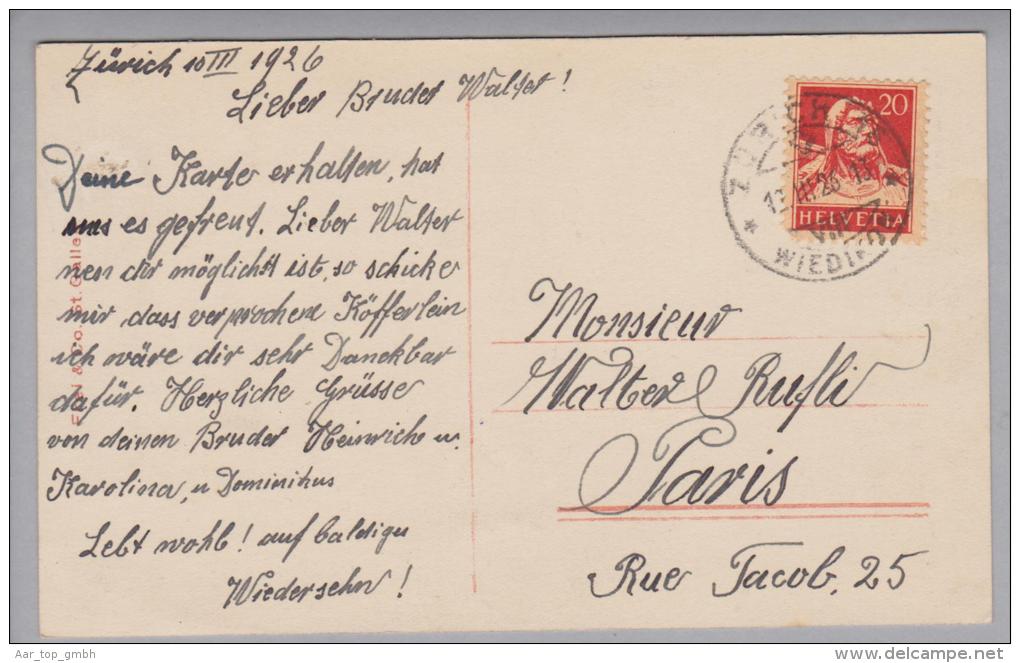 Zürich 10 III 1926
Lieber Bruder Walter!
Deine Karte erhalten, hat
uns es gefreut. Lieber Walter
nen dir möglichst ist, so schicke
mir dass versprochene Köfferlein
ich wäre dir sehr Danckbar
dafür. Herzliche Grüsse
von deinen Bruder Heinrich u.
Karolina, u Dominikus
Lebt wohl! auf baldiges
Wiedersehn!
& Co. St. Galle
20
HELVETIA
ZÜRICH
III.26
VIII
WIEDIKON
Monsieur
Walter Rufli
Paris
Rue Jacob, 25
Aar_top_gmbh
www.delcampe.net